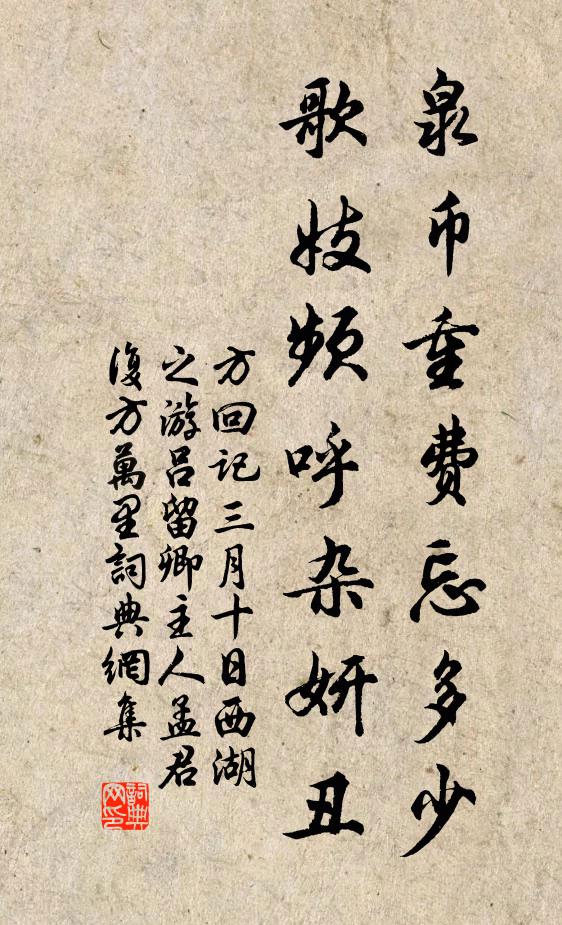 泉币重费忘多少
歌妓频呼杂妍丑
方回记三月十日西湖
之游吕留卿主人孟君
復方萬里詞典網集
詞典
网印